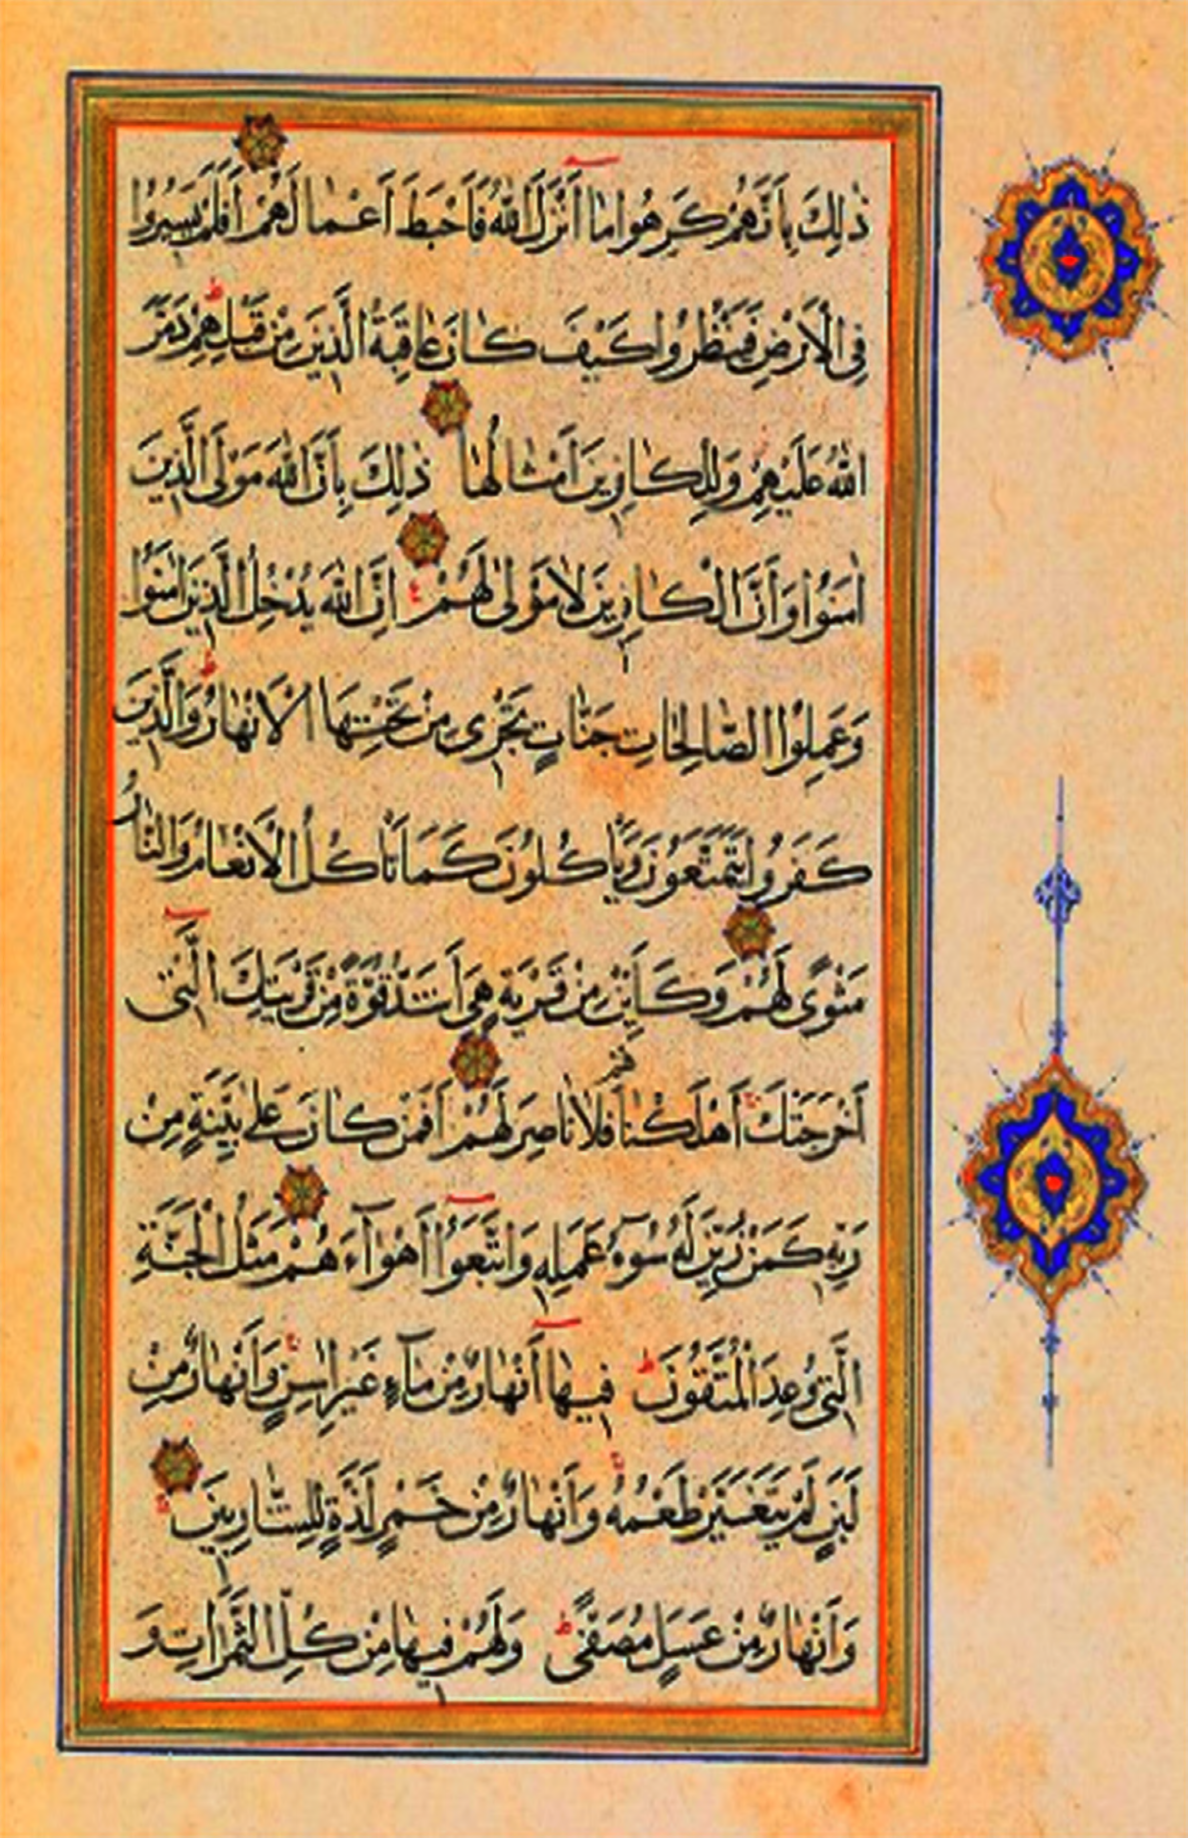 ذٰلِكَ بِاَنَّهُمْ كَرِهُوا مَا اَنْزَلَ اللّٰهُ فَاَحْبَطَ اَعْمَالَهُمْ اَفَلَمْ يَسِيرُوا
فِى الْاَرْضِ فَيَنْظُرُوا كَيْفَ كَانَ عَاقِبَةُ الَّذِينَ مِنْ قَبْلِهِمْ دَمَّرَ
اللّٰهُ عَلَيْهِمْ وَلِلْكَافِرِينَ اَمْثَالُهَا ذٰلِكَ بِاَنَّ اللّٰهَ مَوْلَى الَّذِينَ
اٰمَنُوا وَاَنَّ الْكَافِرِينَ لَا مَوْلٰى لَهُمْ اِنَّ اللّٰهَ يُدْخِلُ الَّذِينَ اٰمَنُوا
وَعَمِلُوا الصَّالِحَاتِ جَنَّاتٍ تَجْرِى مِنْ تَحْتِهَا الْاَنْهَارُ وَالَّذِينَ
كَفَرُوا يَتَمَتَّعُونَ وَيَاْكُلُونَ كَمَا تَاْكُلُ الْاَنْعَامُ وَالنَّارُ
مَثْوًى لَهُمْ وَكَاَيِّنْ مِنْ قَرْيَةٍ هِىَ اَشَدُّ قُوَّةً مِنْ قَرْيَتِكَ الَّتِى
اَخْرَجَتْكَ اَهْلَكْنَاهُمْ فَلَا نَاصِرَ لَهُمْ اَفَمَنْ كَانَ عَلٰى بَيِّنَةٍ مِنْ
رَبِّهِ كَمَنْ زُيِّنَ لَهُ سُوٓءُ عَمَلِهِ وَاتَّبَعُوا اَهْوَآءَهُمْ مَثَلُ الْجَنَّةِ
الَّتِى وُعِدَ الْمُتَّقُونَ فِيهَا اَنْهَارٌ مِنْ مَآءٍ غَيْرِ اٰسِنٍ وَاَنْهَارٌ مِنْ
لَبَنٍ لَمْ يَتَغَيَّرْ طَعْمُهُ وَاَنْهَارٌ مِنْ خَمْرٍ لَذَّةٍ لِلشَّارِبِينَ
وَاَنْهَارٌ مِنْ عَسَلٍ مُصَفًّى وَلَهُمْ فِيهَا مِنْ كُلِّ الثَّمَرَاتِ وَ